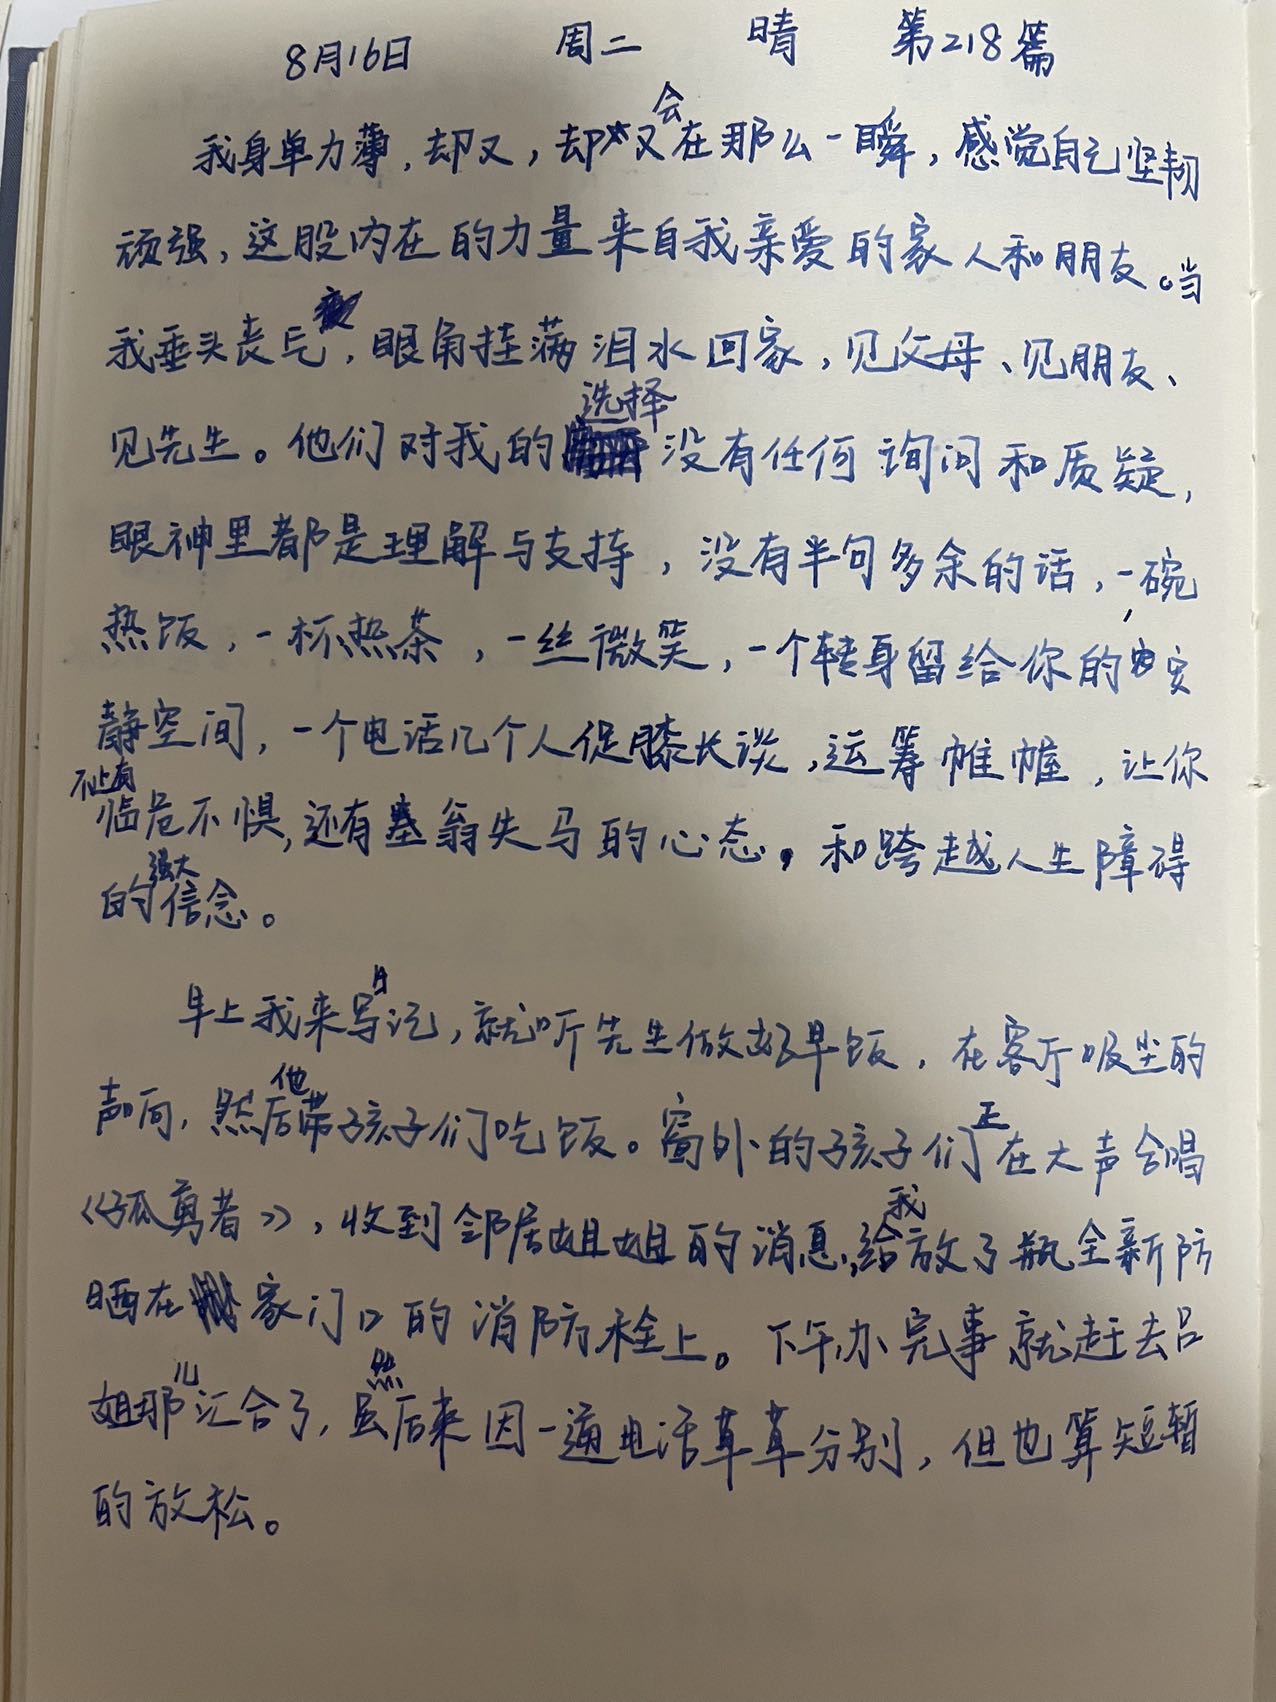 8月16日 周二 晴 第218篇
我身单力薄，却又，却又会在那么一瞬，感觉自己坚韧
顽强，这股内在的力量来自我亲爱的家人和朋友。当
我垂头丧气，眼角挂满泪水回家，见父母、见朋友、
见先生。他们对我的选择没有任何询问和质疑，
眼神里都是理解与支持，没有半句多余的话，一碗
热饭，一杯热茶，一丝微笑，一个转身留给你的安
静空间，一个电话几个人促膝长谈，运筹帷幄，让你
不止有临危不惧，还有塞翁失马的心态，和跨越人生障碍
的强大信念。
早上我来写日记，就听先生做好早饭，在客厅吸尘的
声响，然后他带孩子们吃饭。窗外的孩子们正在大声合唱
《孤勇者》，收到邻居姐姐的消息，给我放了瓶全新防
晒在家门口的消防栓上。下午办完事就赶去吕
姐那儿汇合了，虽然后来因一通电话草草分别，但也算短暂
的放松。